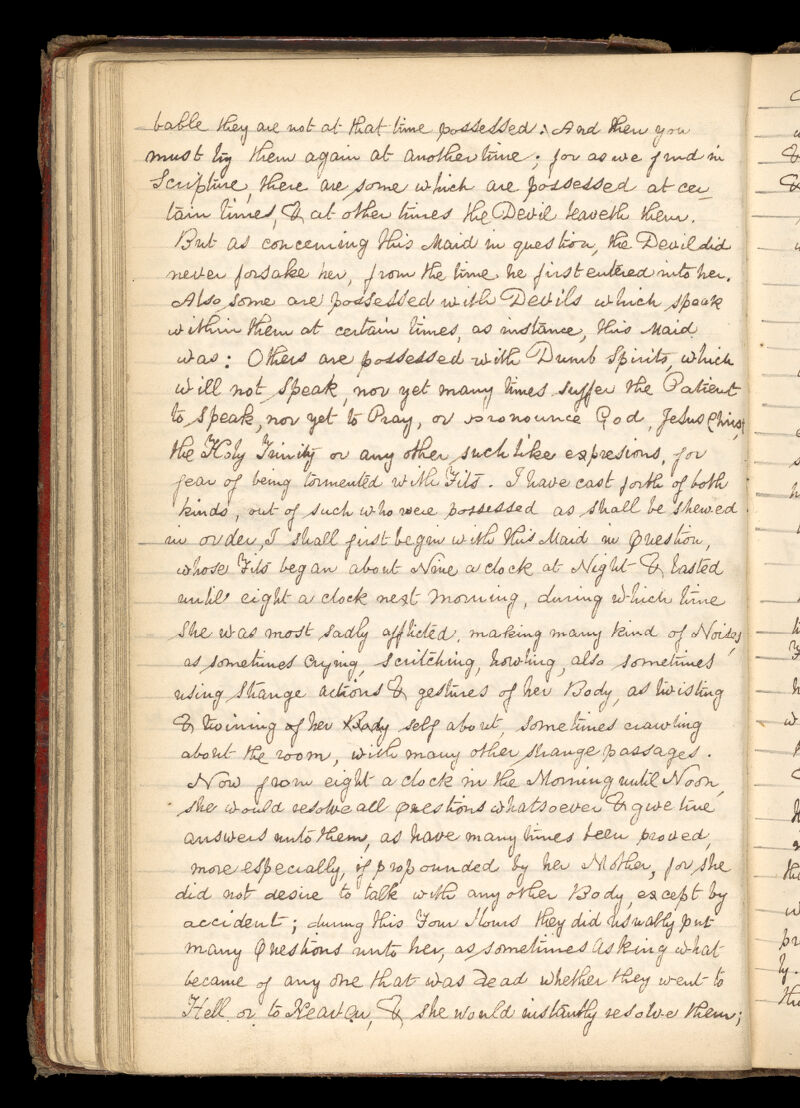 bable they are not at that time possessed: And then you
must try them again at another time; for as we find in
Scripture, there are some which are possessed at cer_
tain times, & at other times the Devil leaveth them.
But as concerning this Maid in question, the Devil did
never forsake her, from the time he first entered into her.
Also some are possessed with Devils which speak
within them at certain times, as instance, this Maid
was: Others are possessed with Dumb Spirits, which
will not Speak, nor yet many times suffer the Patient
to Speak, nor yet to Pray, or pronounce God, Jesus Christ,
the Holy Trinity or any other such like expresions, for
fear of being tormented with Fits. I have cast forth of both
kinds, out of such who were possessed as shall be shewed
in order, I shall first begin with this Maid in Question,
whose Fits began about Nine a clock at Night & lasted
until eight a clock next Morning, during which time
She was most sadly afflicted, making many kind of Noises,
as sometimes Crying, scritching, howling, also sometimes
using strange actions & gestures of her Body, as twisting
& twining of her Body self about, sometimes crawling
about the room, with many other strange passages.
Now from eight a clock in the Morning until Noon,
she would resolve all Questions whatsoever & give true
answers unto them, as have many times been proved,
more especially, if propounded by her Mother, for she
did not desire to talk with any other Body, except by
accident; during this Four Hours they did usually put
many Questions unto her, as sometimes asking what
became of any one that was Dead whether they went to
Hell or to Heaven, & she would instantly resolve them;